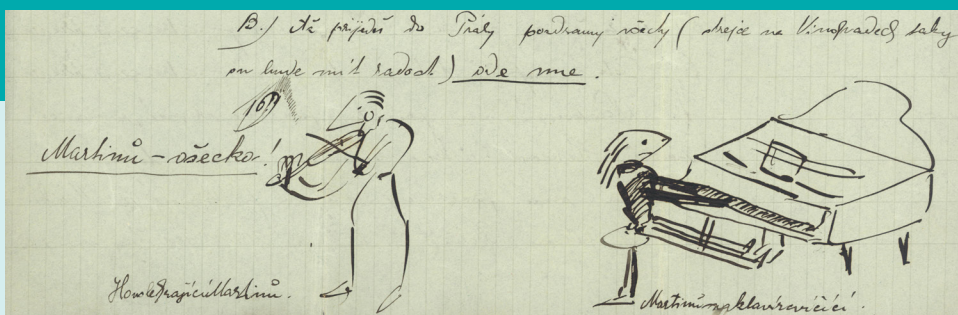 B.) Až přijdeš do Prahy pozdravuj všecky (strejce na Vinohradech taky
on bude mít radost) ode mne.
16)
Martinů – všecko!
Housle hrající Martinů.
Martinů na klavír cvičící.